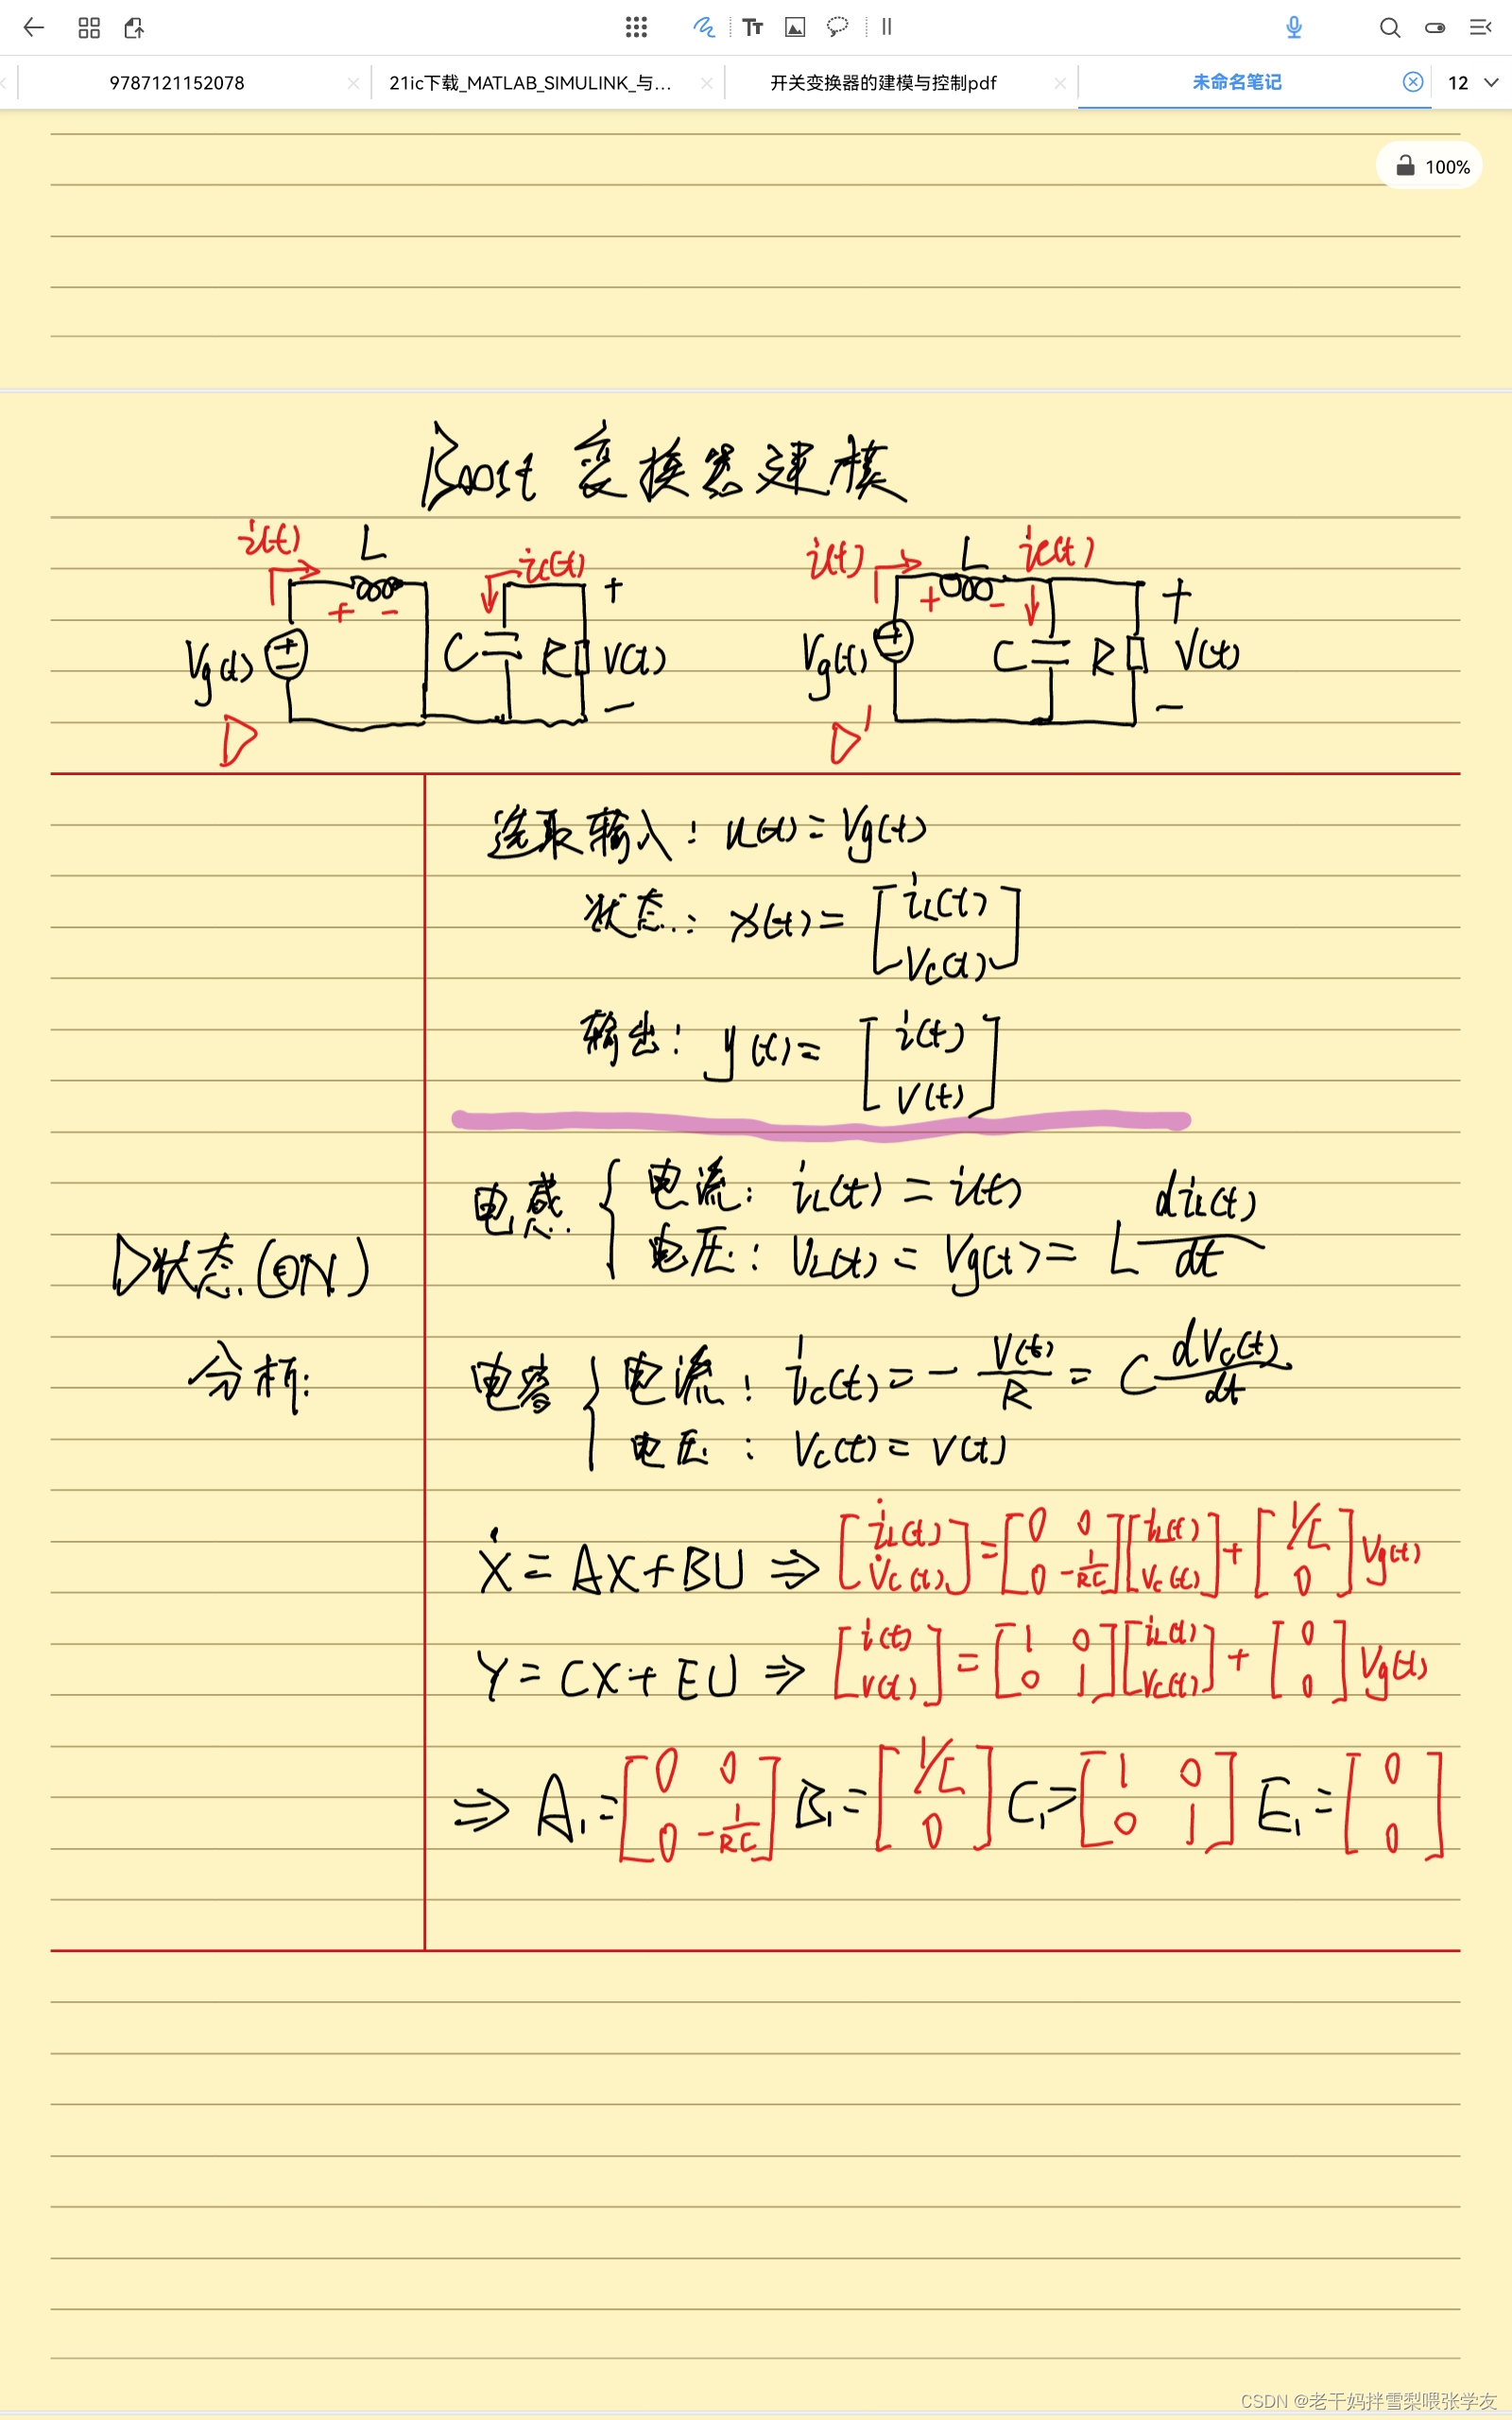 9787121152078 21ic下载_MATLAB_SIMULINK_与... 开关变换器的建模与控制pdf 未命名笔记 12
100%
Boost 变换器建模
i(t) L ic(t) + i(t) L ic(t) +
+ - + -
Vg(t) C R V(t) Vg(t) C R V(t)
D - D' -
选取输入: u(t) = Vg(t)
状态: x(t) = [iL(t) Vc(t)]
输出: y(t) = [i(t) V(t)]
电感 { 电流: iL(t) = i(t)
电压: VL(t) = Vg(t) = L diL(t)/dt
D状态(ON)
分析:
电容 { 电流: ic(t) = - V(t)/R = C dVc(t)/dt
电压: Vc(t) = V(t)
Ẋ = AX + BU ⇒ [i̇L(t) V̇c(t)] = [0 0 0 -1/RC] [iL(t) Vc(t)] + [1/L 0] Vg(t)
Y = CX + EU ⇒ [i(t) V(t)] = [1 0 0 1] [iL(t) Vc(t)] + [0 0] Vg(t)
⇒ A1 = [0 0 0 -1/RC] B1 = [1/L 0] C1 = [1 0 0 1] E1 = [0 0]
CSDN @老干妈拌雪梨喂张学友